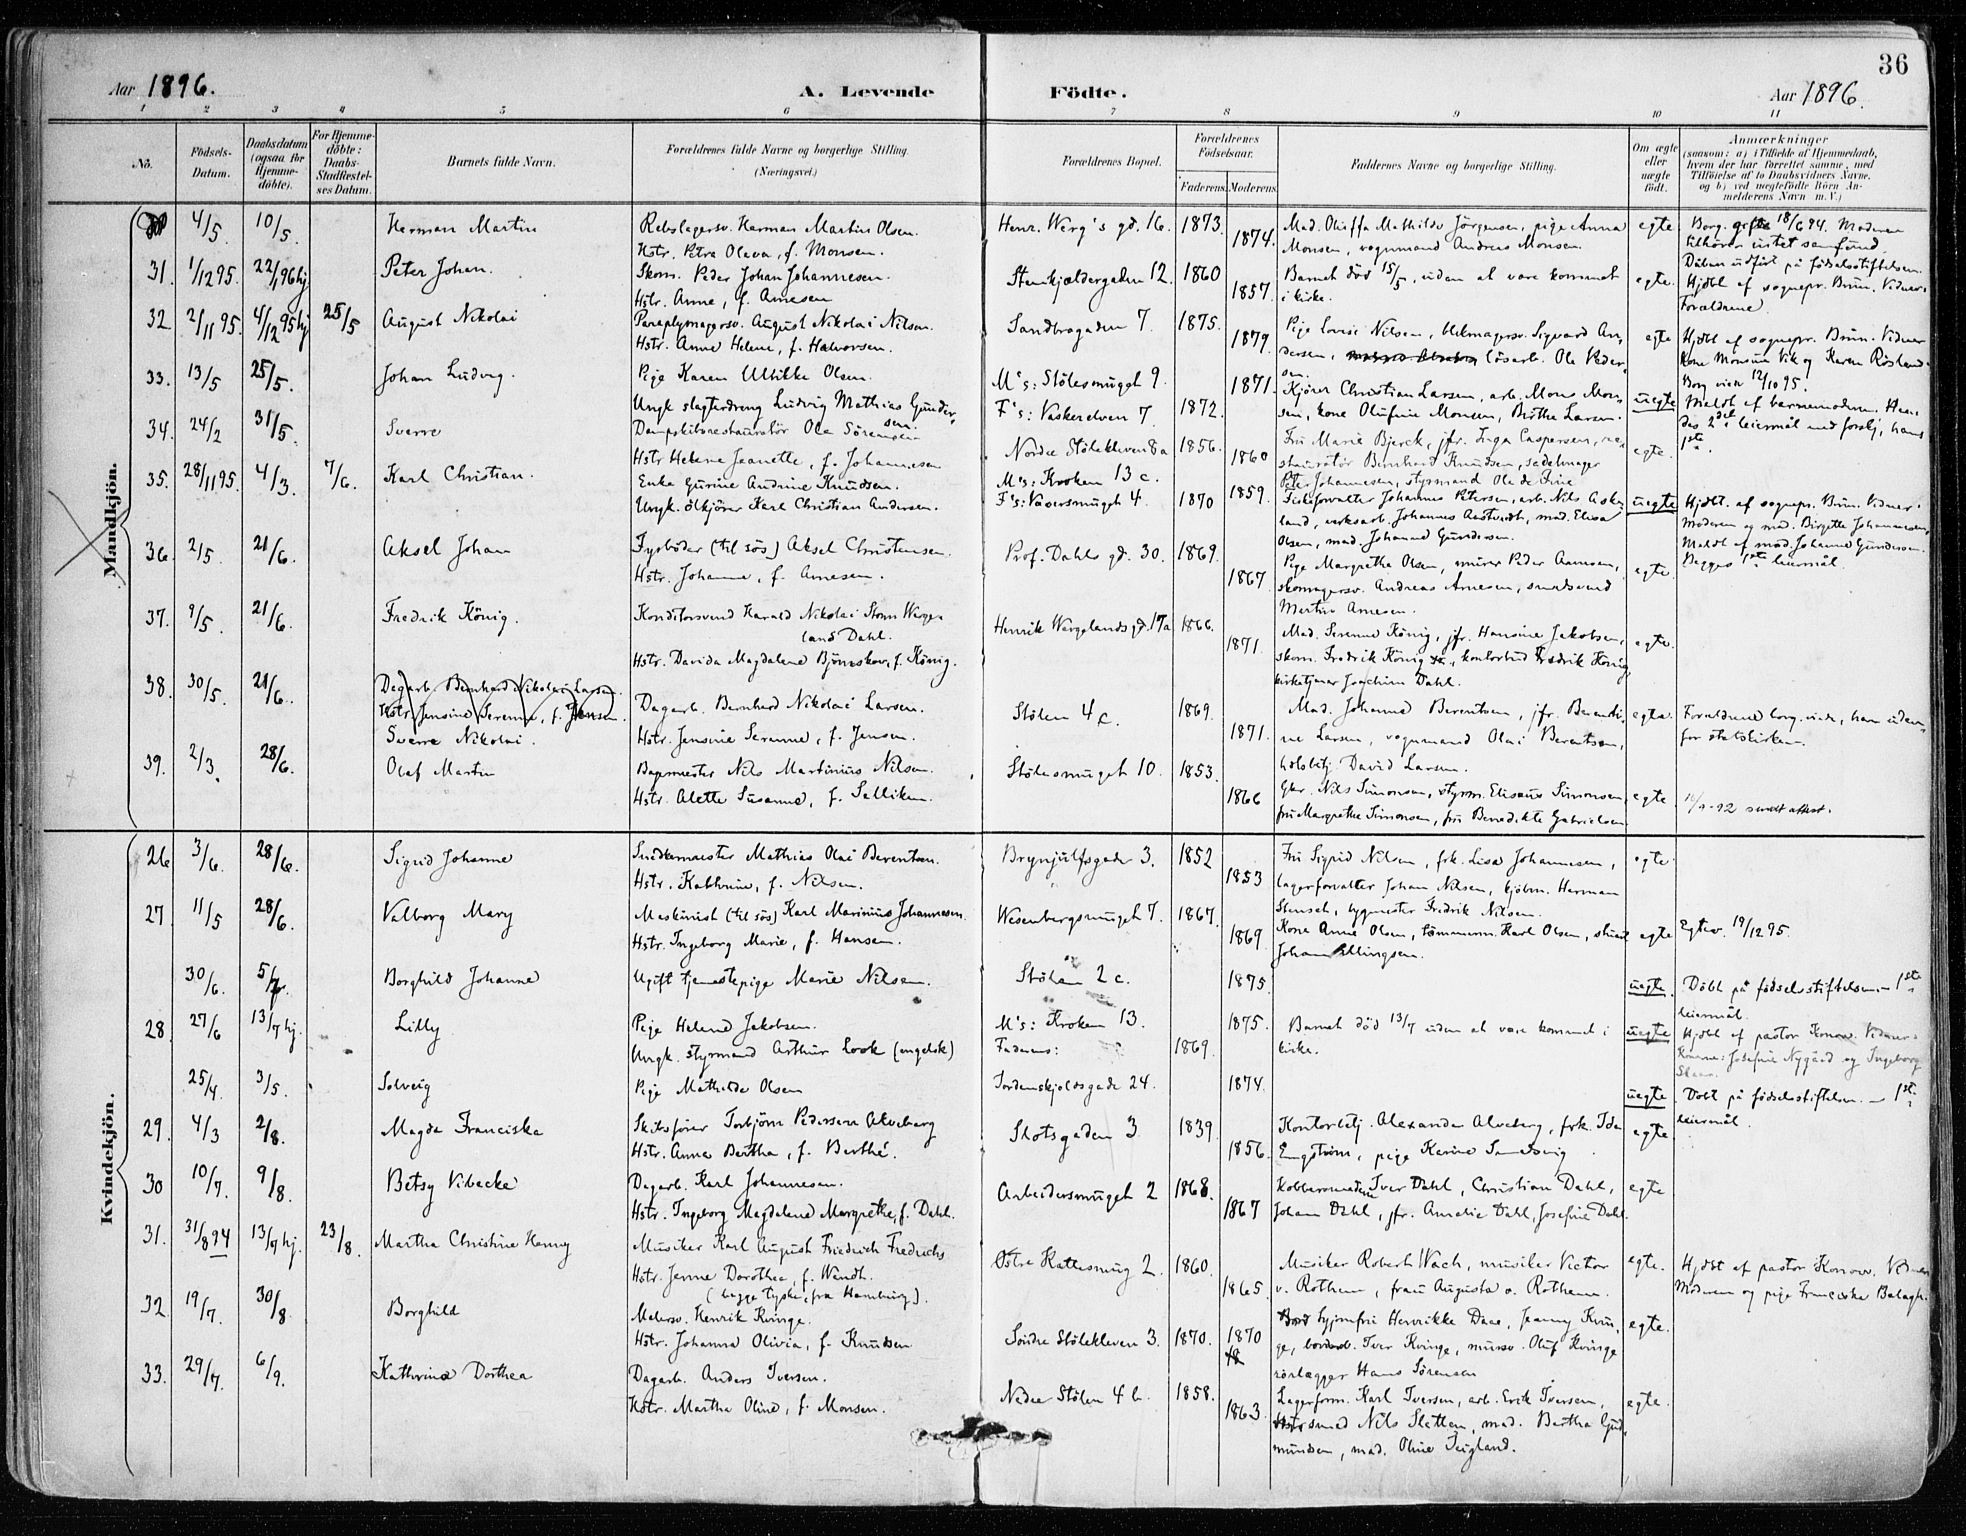 36
Aar 1896.
A. Levende
Födte.
Aar 1896.
1 2 3 4 5 6 7 8 9 10 11
No.
Födsels-
Datum.
Daabsdatum
(ogsaa for
Hjemme-
döbte).
For Hjemme-
döbte:
Daabs-
Stadfæstel-
ses Datum.
Barnets fulde Navn.
Forældrenes fulde Navne og borgerlige Stilling.
(Næringsvei.)
Forældrenes Bopæl.
Forældrenes
Födselsaar.
Faderens. Moderens.
Faddernes Navne og borgerlige Stilling.
Om ægte
eller
uægte
födt.
Anmærkninger
(saasom: a) i Tilfælde af Hjemmedaab,
hvem der har forrettet samme, med
Tilföielse af to Daabsvidners Navne,
og b) ved uægtefödte Börn An-
melderens Navn m. V.)
Mandkjön.
4/5. 10/5. Herman Martin
Rebslagersv. Herman Martin Olsen.
Hstr. Petra Olava, f. Monsen.
Henr. Werg's gd. 16. 1873. 1874.
Mad. Oluffa Mathilde Jörgensen, pige Anna
Monsen, vognmand Andreas Monsen.
egte
Borg. gifte 18/6 94. Moderen
tilhörer intet samfund.
Daaben udfört på födselsstiftelsen.
31. 1/12 95. 22/1 96 hj Peter Johan.
Skom. Peder Johan Johannesen.
Hstr. Anne, f. Arnesen
Stenkjældergaden 12. 1860 1857.
Barnet död 15/5, uden at være kommet
i kirke.
egte.
Hjdbt af sognepr. Brun. Vidner:
Forældrene.
32 2/11 95. 4/12 95 hj 25/5 August Nikolai
Paraplymagersv. August Nikolai Nilsen.
Hstr. Anna Helene, f. Halvorsen.
Sandbrogaden 7. 1875. 1879.
Pige Lovise Nilsen, Uhrmagersv. Sigvard An-
dersen, lösarb. Ole Peder-
sen.
egte
Hjdbt af sognepr. Brun. Vidner
Kone Monsine Vik og Karen Rösland.
Borg viet 12/10 95.
33. 13/5 25/5. Johan Ludvig.
Pige Karen Ulrikke Olsen.
Ungk slagterdreng Ludvig Mathias Gunder-
sen.
M's: Stölesmuget 9.
F's: Vaskerelven 7. 1872. 1871.
Kjörer Christian Larsen, arb. Mons Mon-
sen, kone Olufine Monsen, Brithe Larsen.
uegte
Meldt af barnemoderen. Hen-
des 2det leiermål med forskj, hans
1ste.
34. 24/2 31/5. Sverre
Dampskibsrestauratör Ole Sörensen
Hstr Helene Jeanette, f. Johannesen
Nordre Stölekleven 8a 1856. 1860
Fru Marie Bjerck, jfr. Inga Caspersen, re-
stauratör Bernhard Knudsen, sadelmager
Peter Johannesen, styrmand Ole de Fine
egte.
35. 28/11 95. 4/3. 7/6. Karl Christian.
Enke Gurine Andrine Knudsen.
Ungk. ölkjörer Karl Christian Andersen.
M's: Kroken 13 c.
F's: Nöstersmuget 4. 1870 1859.
Fiskeforvalter Johannes Petersen, arb. Nils Aske-
land, verksarb. Johannes Aastvedt, mad. Elisa
Olsen, mad. Johanne Gundersen.
uegte
Hjdbt. af sognepr. Brun. Vidner:
Moderen og mad. Birgitte Johannesen.
Meldt af mad. Johanne Gundersen.
Begges 1ste leiermål.
36. 2/5. 21/6. Aksel Johan
Fyrböder (til sös) Aksel Christensen.
Hstr. Johanne, f. Arnesen.
Prof. Dahls gd. 30. 1869. 1867.
Pige Margrethe Olsen, murer Peder Arnesen,
skomagersv. Andreas Arnesen, smedsvend
Martin Arnesen.
egte.
37. 9/5. 21/6. Fredrik König.
Konditorsvend Harald Nikolai Storm Werge-
land Dahl.
Hstr. Davida Magdalene Bjönnskov, f. König.
Henrik Wergelandsgd. 17a 1866. 1871.
Mad. Serenne König, jfr. Hansine Jakobsen,
skom. Fredrik König, kontorbud Fredrik König
kirketjener Joachim Dahl.
egte.
38. 30/5. 21/6.
Dagarb. Bernhard Nikolai Larsen.
Hstr. Jensine Serenne, f. Jensen.
Sverre Nikolai.
Dagarb. Bernhard Nikolai Larsen.
Hstr. Jensine Serenne, f. Jensen.
Stölen 4c. 1869. 1871.
Mad. Johanne Berentsen, jfr. Berenti-
ne Larsen, vognmand Olai Berentsen,
holsbetj David Larsen.
egte.
Forældrene borg. viede, han uden-
for statskirken.
39. 2/3. 28/6. Olaf Martin
Bagmester Nils Martinius Nilsen.
Hstr. Alette Susanne, f. Selliken.
Stölesmuget 10. 1853. 1866
Gbr. Nils Simonsen, styrm. Elisæus Simonsen,
fru Margrethe Simonsen, fru Benedikte Gabrielsen
egte
Kvindekjön.
26 3/6. 28/6. Sigrid Johanne
Snedkermester Mathias Olai Berentsen.
Hstr. Kathrine, f. Nilsen.
Brynjulfsgade 3. 1852 1853
Fru Sigrid Nilsen, frk. Lisa Johannesen,
lagerforvalter Johan Nilsen, kjöbm. Herman
Stensek, bygmester Fredrik Nilsen.
egte
27 11/5 28/6. Valborg Mary
Maskinist (til sös) Karl Marinius Johannesen.
Hstr. Ingeborg Marie, f. Hansen.
Wesenbergsmuget 7. 1867. 1869
Kone Anne Olsen, tömmerm. Karl Olsen,
Johan Ellingsen.
egte
Egtev. 19/12 95.
30/6. 5/7. Borghild Johanne
Ugift tjenestepige Marie Nilsen.
Stölen 2 c. 1875.
uegte.
Döbt på födselsstiftelsen. 1ste
leiermål.
28. 27/6 13/7 hj. Lilly
Pige Helene Jakobsen.
Ungk. styrmand Arthur Look (engelsk)
M's: Kroken 13.
Faderens: 1869. 1875.
Barnet död 13/7 uden at være kommet i
kirke.
uegte
Hjdbt af pastor Konow. Vidner:
Konerne: Josefine Nygård og Ingeborg
Skaar.
25/4 3/5. Solveig
Pige Mathilde Olsen
Tordenskjoldsgade 24. 1874.
uegte.
Döbt på födselsstiftelsen. — 1ste
leiermål.
29. 4/3 2/8. Magda Franciska
Skibsförer Torbjörn Pedersen Alveberg
Hstr. Anna Bertha, f. Berthé.
Slotsgaden 3. 1839. 1856.
Kontorbetj. Alexander Alveberg, frk. Ida
Engström, pige Karine Sandvig
egte
30 10/7. 9/8. Betsy Vibecke
Dagarb. Karl Johannesen.
Hstr. Ingeborg Magdalene Margrethe, f. Dahl.
Arbeidersmuget 2 1868. 1867
Kobbersmedene Iver Dahl, Christian Dahl,
Johan Dahl, jfr. Amalie Dahl, Josefine Dahl.
egte
31. 31/8 94 13/9 hj. 23/8. Martha Christine Henny
Musiker Karl August Friedrich Fredrichs
Hstr. Jenne Dorothea, f. Wendt.
(begge tyske, fra Hamburg).
Östre Kattesmug 2. 1860. 1865
Musiker Robert Wach, musiker Victor
v. Rothem, frau Augusta v. Rothem.
egte.
Hjdbt af pastor Konow. Vidner
Moderen og pige Franciska Balagh.
32 19/7. 30/8. Borghild
Malersv. Henrik Kvinge.
Hstr. Johanna Olivia, f. Knudsen
Söndre Stölekleven 3. 1870. 1870
Syjomfru Henrikke Daae, Jenny Kvin-
ge, Iver Kvinge, mursv. Oluf Kvinge
rörlægger Hans Sörensen
egte.
33. 29/7. 6/9. Kathrine Dorthea
Dagarb. Anders Iversen.
Hstr. Martha Oline, f. Monsen.
Nedre Stölen 4 b. 1858. 1863.
Lagerform. Karl Iversen, arb. Erik Iversen,
smed Nils Sletten, mad. Bertha Gud-
mundsen, mad. Oline Teigland.
egte.